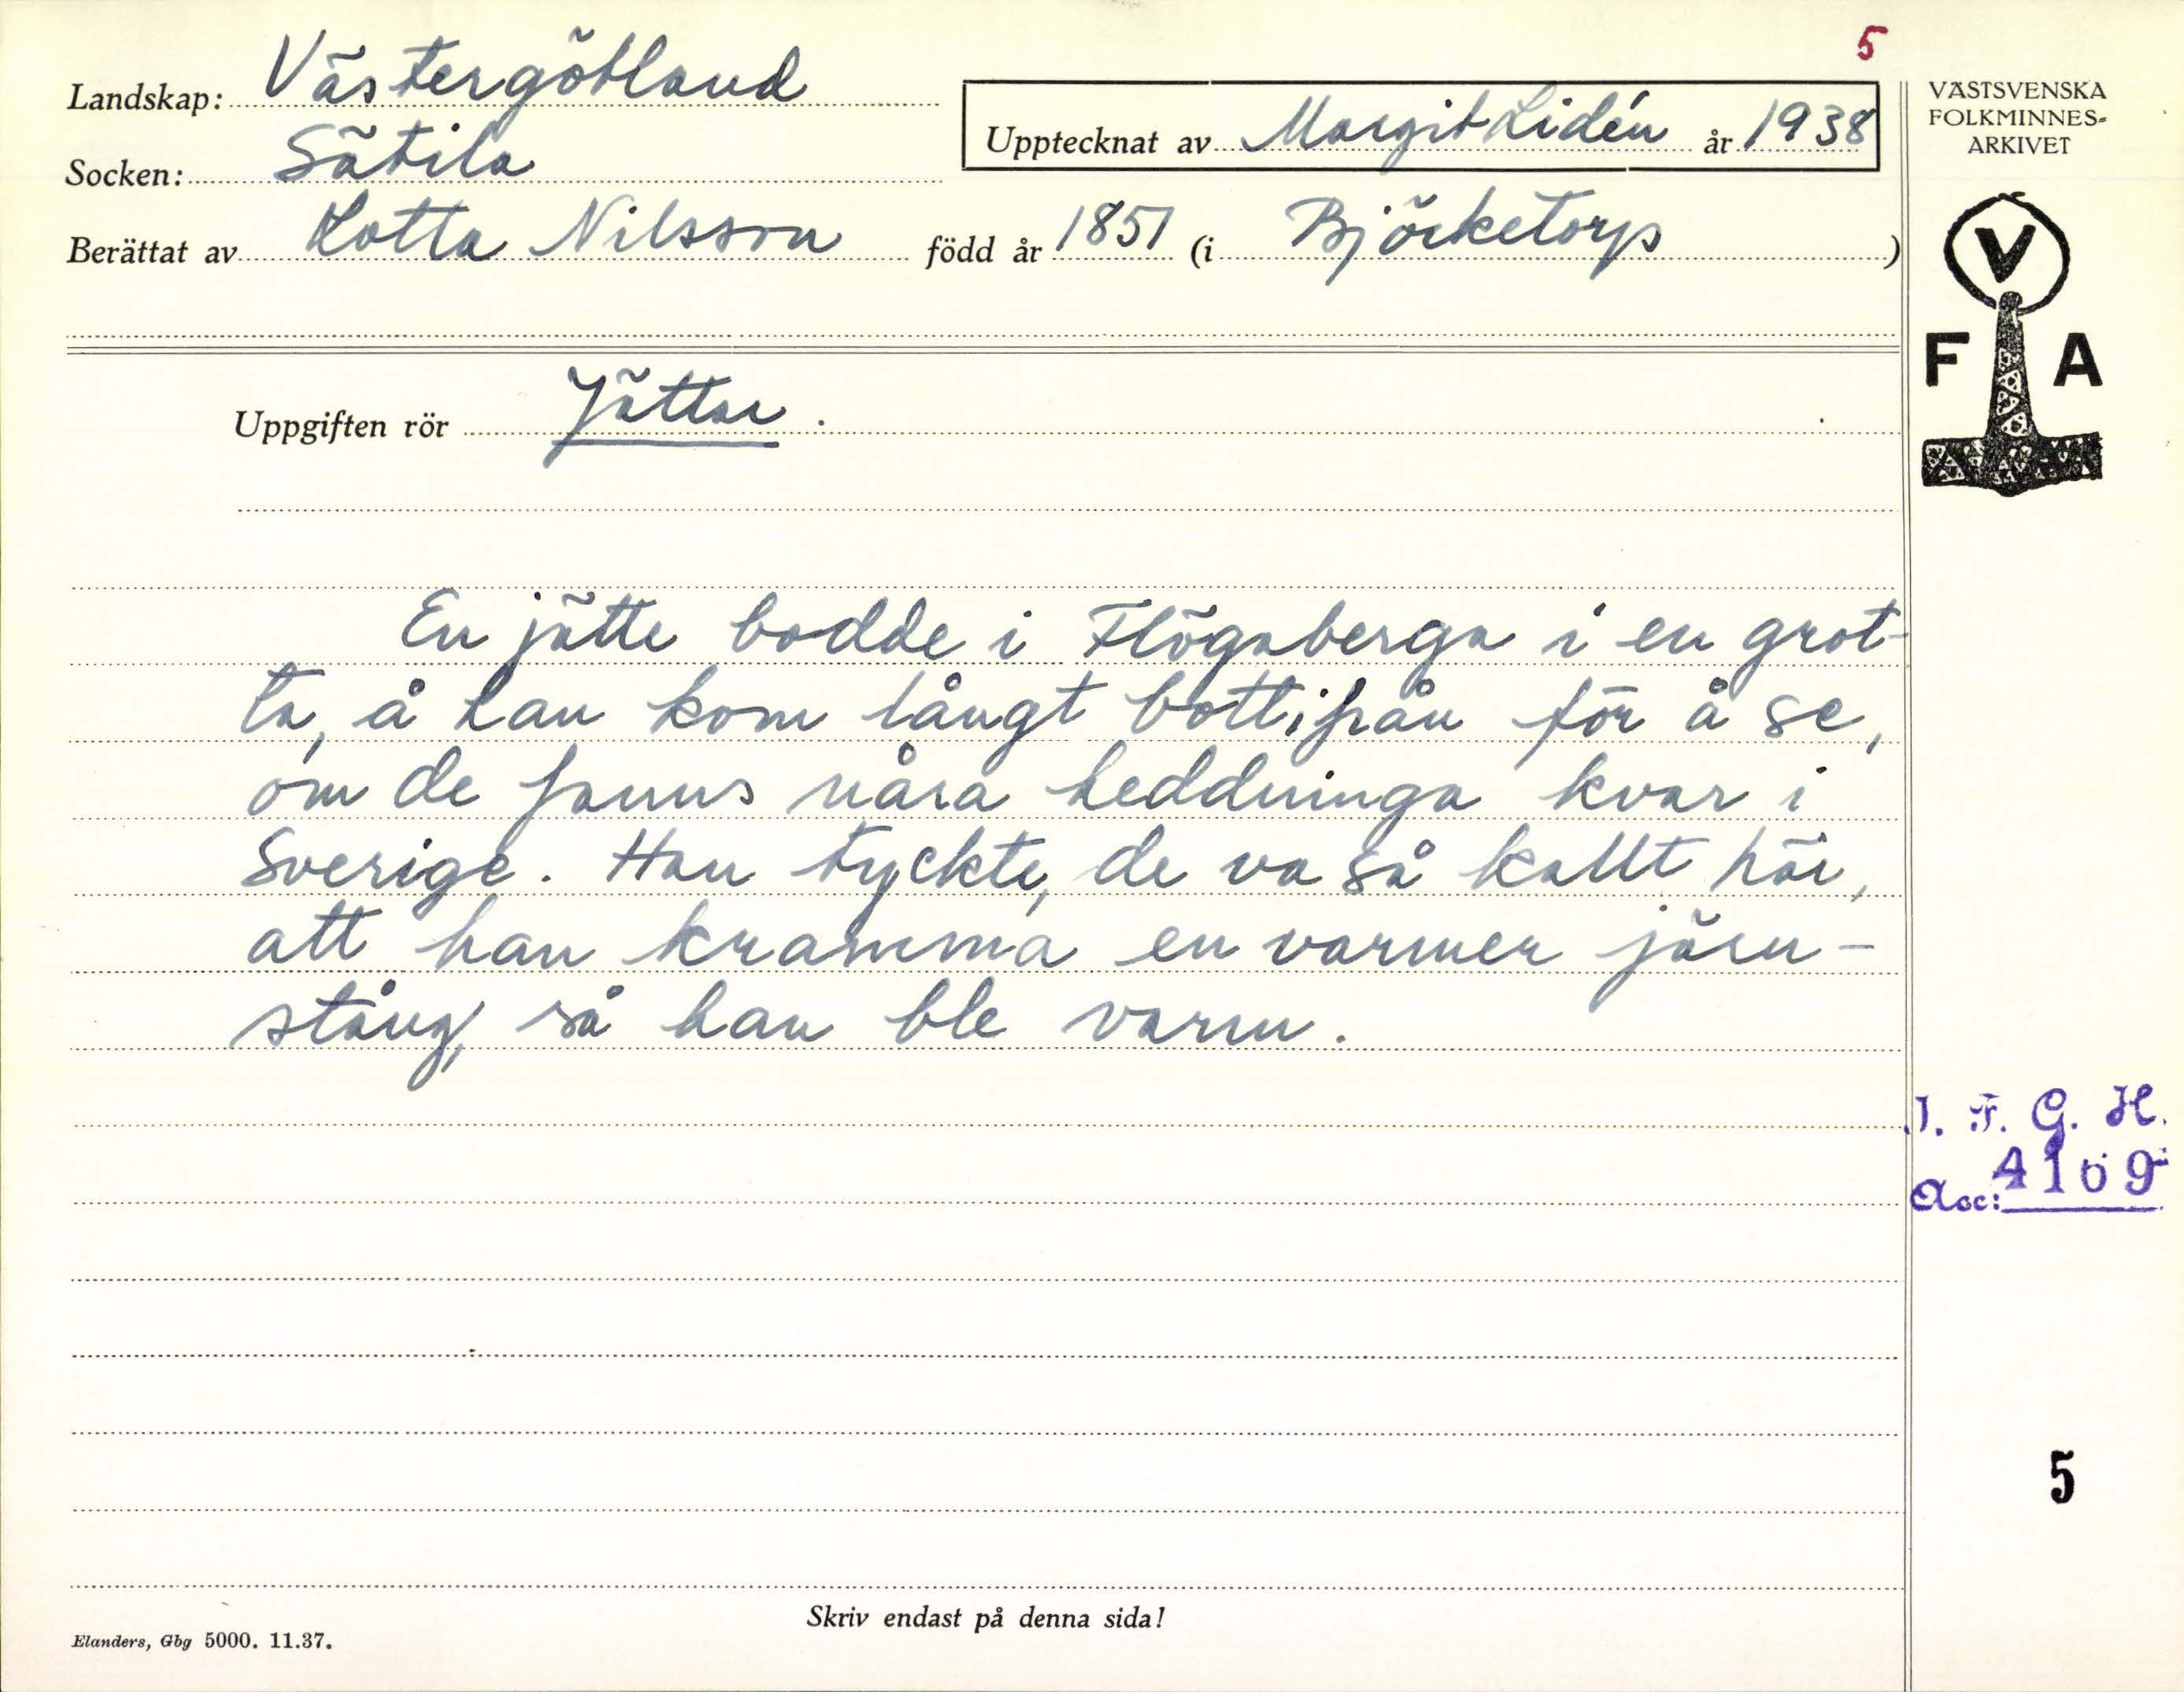 5
Landskap: Västergötland
Socken: Sätila
Upptecknat av Margit Lidén år 1938
Berättat av Lotta Nilsson född år 1851 (i Björketorp)
VÄSTSVENSKA
FOLKMINNES-
ARKIVET
V
F A
Uppgiften rör Jättar.
En jätte bodde i Flögaberga i en grot-
ta, å han kom långt bottifrån för å se,
om de fanns nåra heddninga kvar i
Sverige. Han tyckte, de va så kallt här,
att han kramma en varmer järn-
stång, så han ble varm.
I. F. G. H.
Acc: 4109
5
Skriv endast på denna sida!
Elanders, Gbg 5000. 11.37.